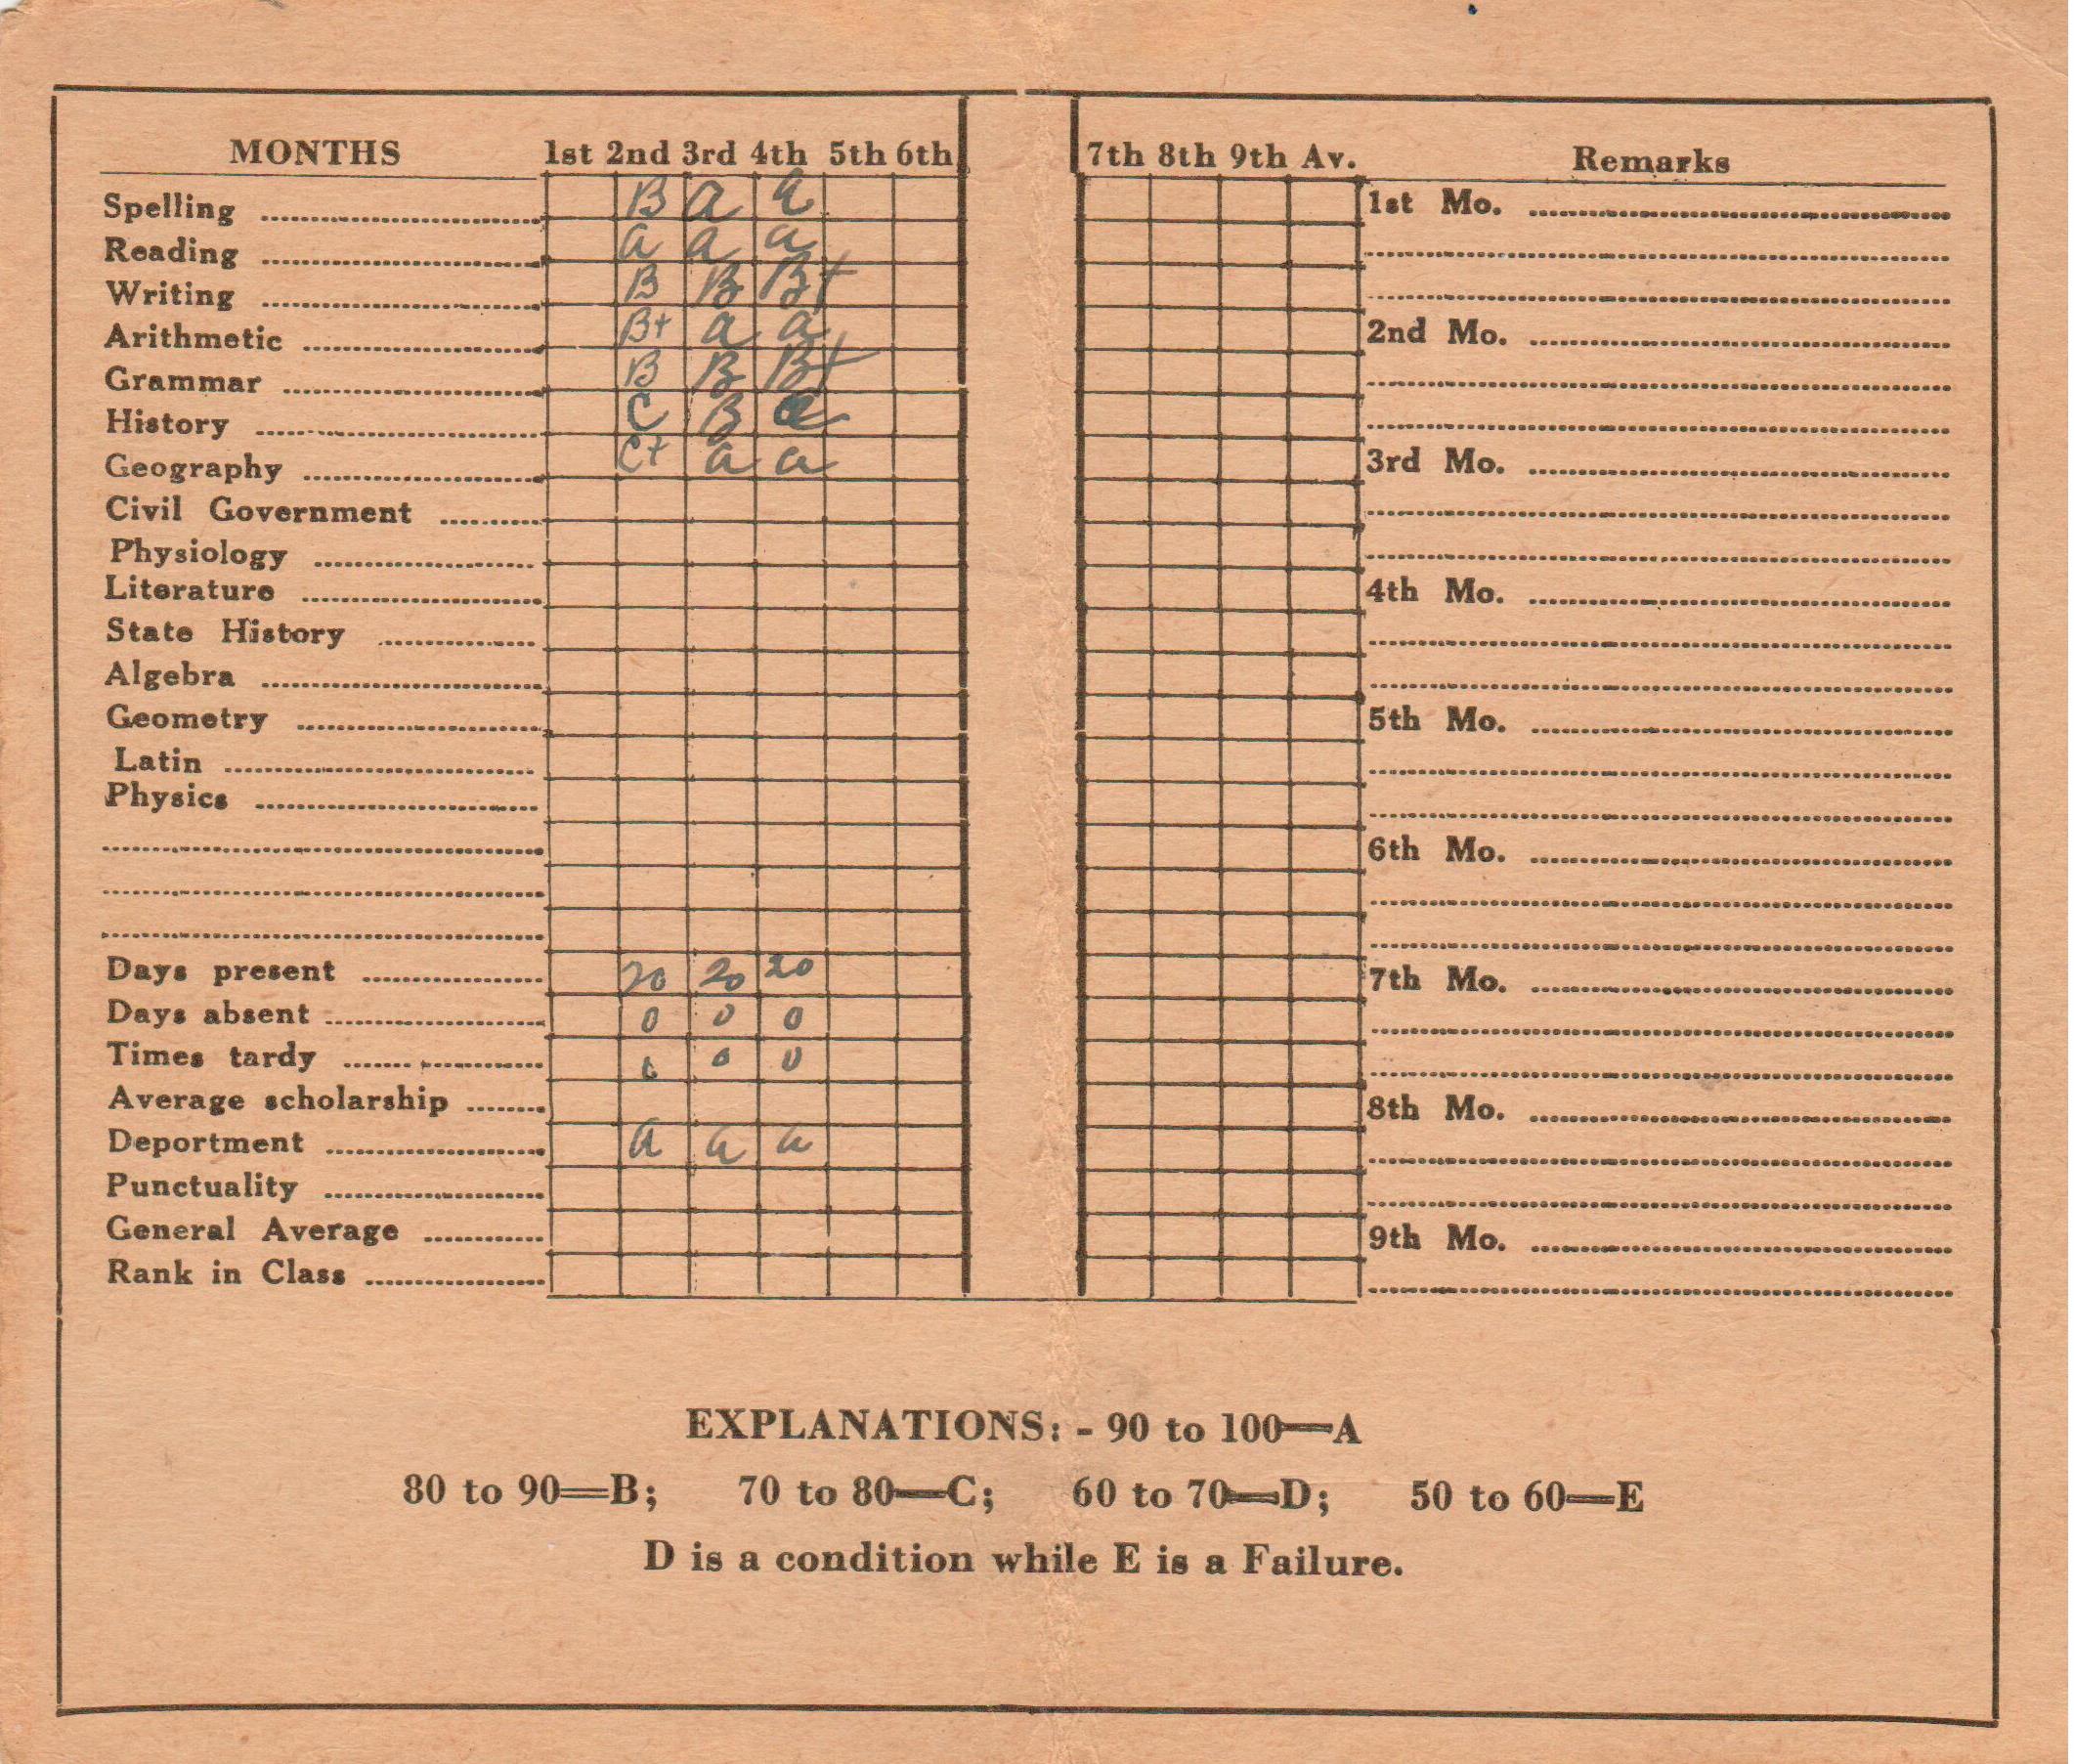 MONTHS 1st 2nd 3rd 4th 5th 6th 7th 8th 9th Av. Remarks
Spelling B a a 1st Mo.
Reading a a a
Writing B B B+
Arithmetic B+ a a 2nd Mo.
Grammar B B B+
History C B
Geography C+ a a 3rd Mo.
Civil Government
Physiology
Literature 4th Mo.
State History
Algebra
Geometry 5th Mo.
Latin
Physics
6th Mo.
Days present 20 20 20 7th Mo.
Days absent 0 0 0
Times tardy 0 0 0
Average scholarship 8th Mo.
Deportment a a a
Punctuality
General Average 9th Mo.
Rank in Class
EXPLANATIONS: - 90 to 100—A
80 to 90—B; 70 to 80—C; 60 to 70—D; 50 to 60—E
D is a condition while E is a Failure.